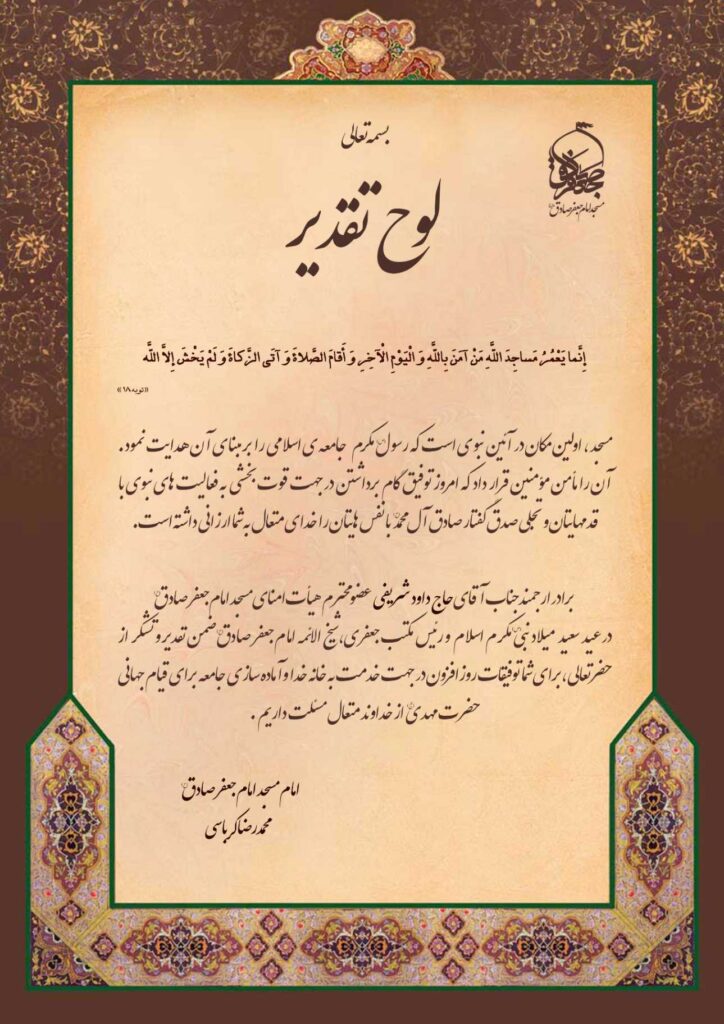 بسمه تعالی
مسجد امام جعفر صادق
لوح تقدیر
إِنَّما يَعْمُرُ مَساجِدَ اللَّهِ مَنْ آمَنَ بِاللَّهِ وَ الْيَوْمِ الْآخِرِ وَ أَقامَ الصَّلاةَ وَ آتَى الزَّكاةَ وَ لَمْ يَخْشَ إِلاَّ اللَّه
«توبه ۱۸»
مسجد، اولین مکان در آئین نبوی است که رسول مکرم جامعه ی اسلامی را بر مبنای آن هدایت نمود.
آن را مأمن مؤمنین قرار داد که امروز توفیق گام برداشتن در جهت قوت بخشی به فعالیت های نبوی با
قدمهایتان و تجلی صدق گفتار صادق آل محمد با نفس هایتان را خدای متعال به شما ارزانی داشته است.
برادر ارجمند جناب آقای حاج داود شریفی عضو محترم هیأت امنای مسجد امام جعفر صادق
در عید سعید میلاد نبی مکرم اسلام و رئیس مکتب جعفری، شیخ الائمه امام جعفر صادق ضمن تقدیر و تشکر از
حضرتعالی، برای شما توفیقات روز افزون در جهت خدمت به خانه خدا و آماده سازی جامعه برای قیام جهانی
حضرت مهدی از خداوند متعال مسئلت داریم .
امام مسجد امام جعفر صادق
محمدرضا کرباسی